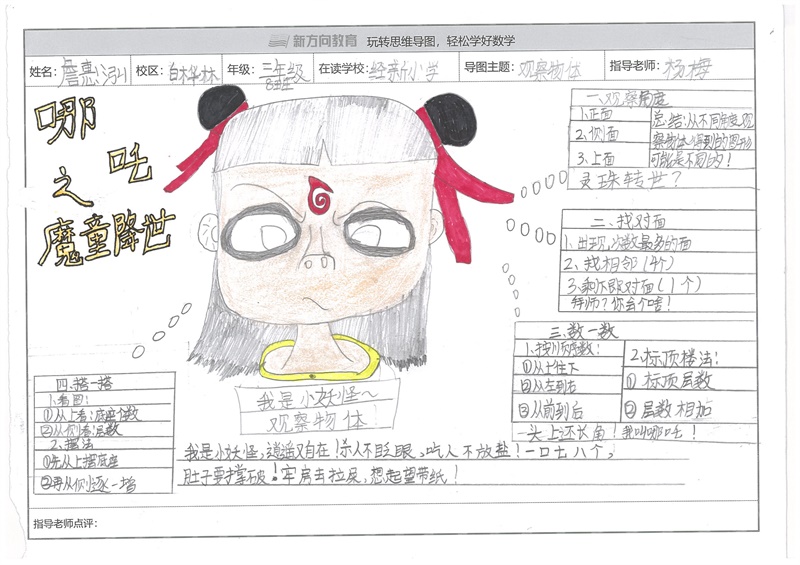 新方向教育 玩转思维导图，轻松学好数学
姓名：詹惠泓 校区：白桦林 年级：三年级8班 在读学校：经新小学 导图主题：观察物体 指导老师：杨梅
哪
吒
之
魔童降世
一、观察角度
1、正面
2、侧面
3、上面
总结：从不同角度观
察物体，得到的图形
可能是不同的！
灵珠转世？
二、找对面
1、出现次数最多的面
2、找相邻（4个）
3、剩下既对面（1个）
拜师？你会个啥！
三、数一数
1、按顺序数：
①从上往下
②从左到右
③从前到后
2、标顶楼法：
①标顶层数
②层数相加
头上还长角！我叫哪吒！
四、搭一搭
1、看图：
①从上看：底座个数
②从侧看：层数
2、摆法
①先从上摆底座
②再从侧逐一搭
我是小妖怪～
观察物体！
我是小妖怪，逍遥又自在！杀人不眨眼，吃人不放盐！一口七八个，
肚子要撑破！牢房去拉屎，想起望带纸！
指导老师点评：